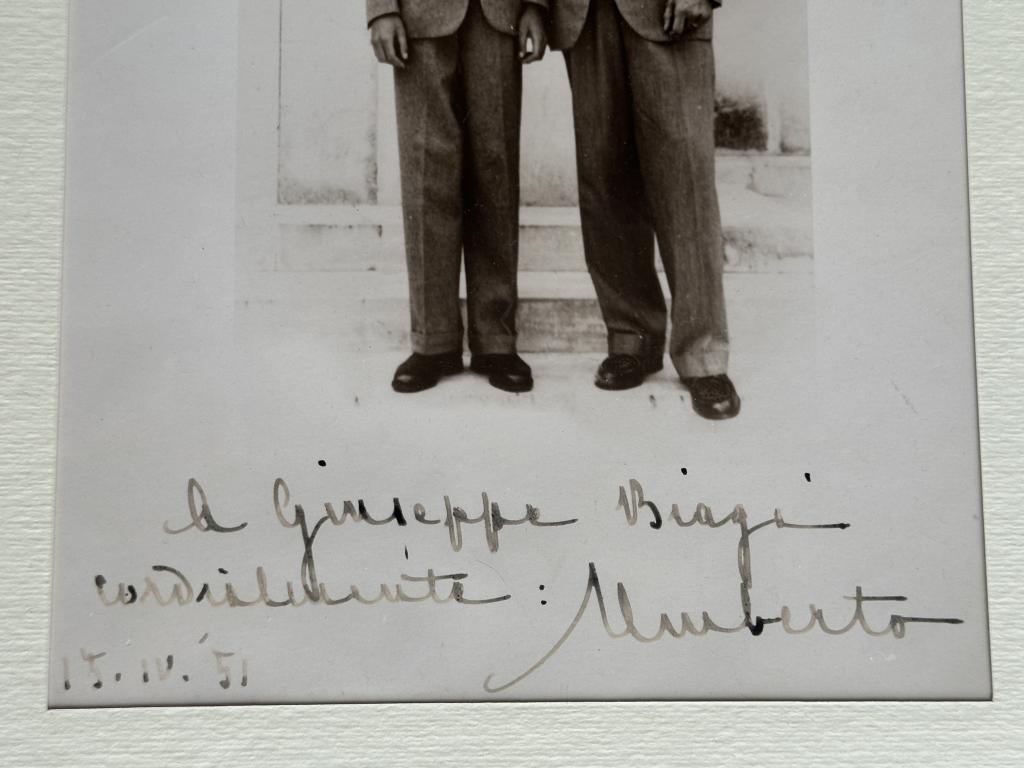 A Giuseppe Biagi
cordialmente : Umberto
15. IV. '51